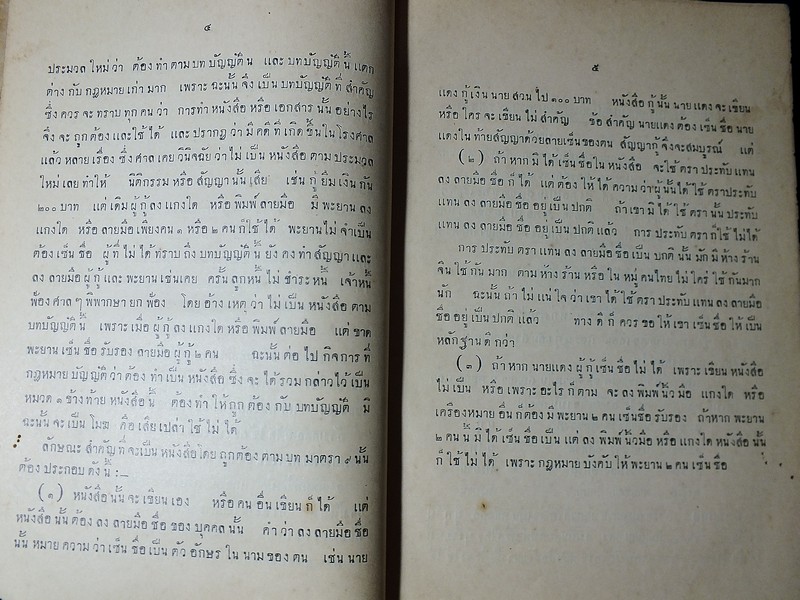 ๔
ประมวลใหม่ว่า ต้องทำตามบทบัญญัตินี้ และบทบัญญัตินี้แตก
ต่างกับกฎหมายเก่ามาก เพราะฉะนั้นจึงเป็นบทบัญญัติที่สำคัญ
ซึ่งควรจะทราบทุกคนว่า การทำหนังสือหรือเอกสารนั้นอย่างไร
จึงจะถูกต้องและใช้ได้ และปรากฏว่ามีคดีที่เกิดขึ้นในโรงศาล
แล้วหลายเรื่อง ซึ่งศาลเคยวินิจฉัยว่าไม่เป็นหนังสือตามประมวล
ใหม่เลยทำให้ นิติกรรมหรือสัญญานั้นเสีย เช่น กู้ยืมเงินกัน
๒๐๐ บาท แต่เดิมผู้กู้ลงแกงใด หรือพิมพ์ลายมือ มีพะยานลง
แกงใด หรือลายมือเพียงคน ๑ หรือ ๒ คนก็ใช้ได้ พะยานไม่จำเป็น
ต้องเซ็นชื่อ ผู้ที่ไม่ได้ทราบถึงบทบัญญัตินี้ ยังคงทำสัญญาและ
ลงลายมือผู้กู้และพะยานเช่นเคย ครั้นลูกหนี้ไม่ชำระหนี้ เจ้าหนี้
ฟ้องศาลๆ พิพากษายกฟ้อง โดยอ้างเหตุว่าไม่เป็นหนังสือตาม
บทบัญญัตินี้ เพราะเมื่อผู้กู้ลงแกงใดหรือพิมพ์ลายมือ แต่ขาด
พะยานเซ็นชื่อรับรองลายมือผู้กู้ ๒ คน ฉะนั้นต่อไปกิจการที่
กฎหมายบัญญัติว่าต้องทำเป็นหนังสือ ซึ่งจะได้รวมกล่าวไว้เป็น
หมวด ๑ ข้างท้ายหนังสือนี้ ต้องทำให้ถูกต้องกับบทบัญญัติ มิ
ฉะนั้นจะเป็นโมฆะ คือเสียเปล่าใช้ไม่ได้
ลักษณะสำคัญที่จะเป็นหนังสือโดยถูกต้องตามบทมาตรา ๙ นั้น
ต้องประกอบดังนี้ :—
(๑) หนังสือนั้นจะเขียนเอง หรือคนอื่นเขียนก็ได้ แต่
หนังสือนั้นต้องลงลายมือชื่อของบุคคลนั้น คำว่าลงลายมือชื่อ
นั้นหมายความว่าเซ็นชื่อเป็นตัวอักษรในนามของตน เช่นนาย
๕
แดงกู้เงินนายสวนไป ๑๐๐ บาท หนังสือกู้นั้นนายแดงจะเขียน
หรือใครจะเขียนไม่สำคัญ ข้อสำคัญนายแดงต้องเซ็นชื่อนาย
แดงในท้ายสัญญาด้วยลายเซ็นของตน สัญญากู้จึงจะสมบูรณ์ แต่
(๒) ถ้าหากมิได้เซ็นชื่อในหนังสือ จะใช้ตราประทับแทน
ลงลายมือชื่อก็ได้ แต่ต้องให้ได้ความว่าผู้นั้นได้ใช้ตราประทับ
แทนลงลายมือชื่ออยู่เป็นปกติ ถ้าเขามิได้ใช้ตรานั้นประทับ
แทนลงลายมือชื่ออยู่เป็นปกติแล้ว การประทับตราก็ใช้ไม่ได้
การประทับตราแทนลงลายมือชื่อเป็นปกตินั้น มักมีห้างร้าน
จีนใช้กันมาก ตามห้างร้านหรือในหมู่คนไทยไม่ใคร่ใช้กันมาก
นัก ฉะนั้นถ้าไม่แน่ใจว่าเขาได้ใช้ตราประทับแทนลงลายมือ
ชื่ออยู่เป็นปกติแล้ว ทางดีก็ควรขอให้เขาเซ็นชื่อให้เป็น
หลักฐานดีกว่า
(๓) ถ้าหากนายแดงผู้กู้เซ็นชื่อไม่ได้ เพราะเขียนหนังสือ
ไม่เป็น หรือเพราะอะไรก็ตาม จะลงพิมพ์นิ้วมือ แกงใด หรือ
เครื่องหมายอื่นก็ต้องมีพะยาน ๒ คนเซ็นชื่อรับรอง ถ้าหากพะยาน
๒ คนนี้มิได้เซ็นชื่อเป็นแต่ลงพิมพ์นิ้วมือหรือแกงใด หนังสือนั้น
ก็ใช้ไม่ได้ เพราะกฎหมายบังคับให้พะยาน ๒ คนเซ็นชื่อ